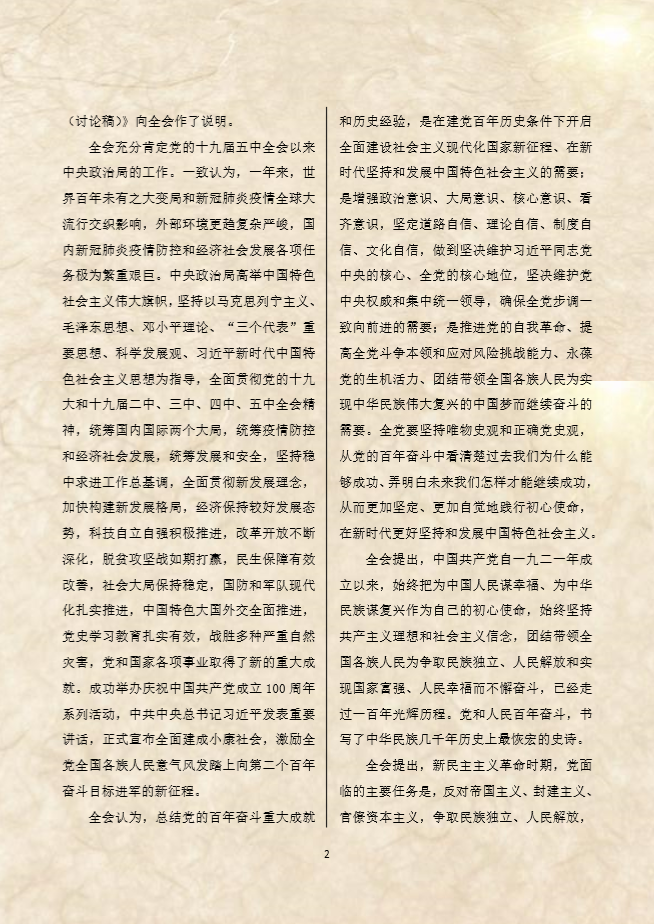 （讨论稿）》向全会作了说明。
全会充分肯定党的十九届五中全会以来
中央政治局的工作。一致认为，一年来，世
界百年未有之大变局和新冠肺炎疫情全球大
流行交织影响，外部环境更趋复杂严峻，国
内新冠肺炎疫情防控和经济社会发展各项任
务极为繁重艰巨。中央政治局高举中国特色
社会主义伟大旗帜，坚持以马克思列宁主义、
毛泽东思想、邓小平理论、“三个代表”重
要思想、科学发展观、习近平新时代中国特
色社会主义思想为指导，全面贯彻党的十九
大和十九届二中、三中、四中、五中全会精
神，统筹国内国际两个大局，统筹疫情防控
和经济社会发展，统筹发展和安全，坚持稳
中求进工作总基调，全面贯彻新发展理念，
加快构建新发展格局，经济保持较好发展态
势，科技自立自强积极推进，改革开放不断
深化，脱贫攻坚战如期打赢，民生保障有效
改善，社会大局保持稳定，国防和军队现代
化扎实推进，中国特色大国外交全面推进，
党史学习教育扎实有效，战胜多种严重自然
灾害，党和国家各项事业取得了新的重大成
就。成功举办庆祝中国共产党成立 100 周年
系列活动，中共中央总书记习近平发表重要
讲话，正式宣布全面建成小康社会，激励全
党全国各族人民意气风发踏上向第二个百年
奋斗目标进军的新征程。
全会认为，总结党的百年奋斗重大成就
和历史经验，是在建党百年历史条件下开启
全面建设社会主义现代化国家新征程、在新
时代坚持和发展中国特色社会主义的需要；
是增强政治意识、大局意识、核心意识、看
齐意识，坚定道路自信、理论自信、制度自
信、文化自信，做到坚决维护习近平同志党
中央的核心、全党的核心地位，坚决维护党
中央权威和集中统一领导，确保全党步调一
致向前进的需要；是推进党的自我革命、提
高全党斗争本领和应对风险挑战能力、永葆
党的生机活力、团结带领全国各族人民为实
现中华民族伟大复兴的中国梦而继续奋斗的
需要。全党要坚持唯物史观和正确党史观，
从党的百年奋斗中看清楚过去我们为什么能
够成功、弄明白未来我们怎样才能继续成功，
从而更加坚定、更加自觉地践行初心使命，
在新时代更好坚持和发展中国特色社会主义。
全会提出，中国共产党自一九二一年成
立以来，始终把为中国人民谋幸福、为中华
民族谋复兴作为自己的初心使命，始终坚持
共产主义理想和社会主义信念，团结带领全
国各族人民为争取民族独立、人民解放和实
现国家富强、人民幸福而不懈奋斗，已经走
过一百年光辉历程。党和人民百年奋斗，书
写了中华民族几千年历史上最恢宏的史诗。
全会提出，新民主主义革命时期，党面
临的主要任务是，反对帝国主义、封建主义、
官僚资本主义，争取民族独立、人民解放，
2